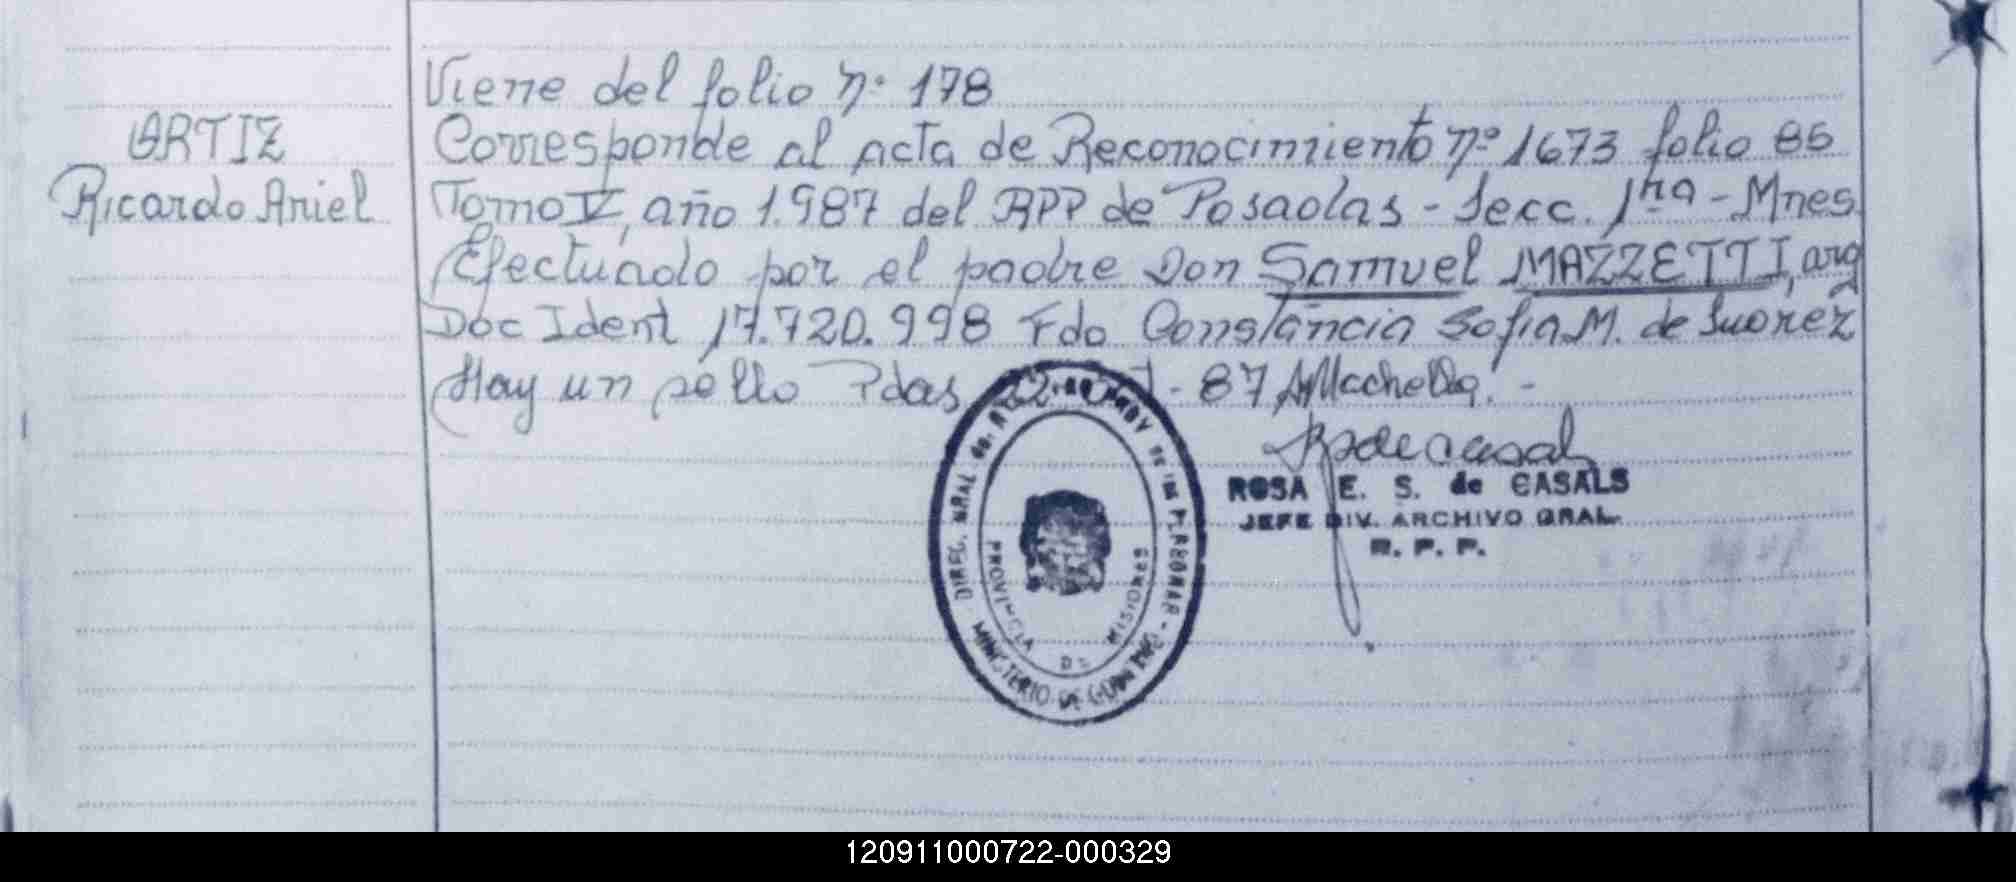 Viene del folio nº 178
ORTIZ
Ricardo Ariel
Corresponde al acta de Reconocimiento nº 1673 folio 85
Tomo V, año 1.987 del RPP de Posadas - Secc. 1ra - Mnes.
Efectuado por el padre Don Samuel MAZZETTI, arg
Doc Ident 17.720.998 Fdo Constancia Sofia M. de Suarez
Hay un sello Pdas 22 - 87
ROSA E. S. de CASALS
JEFE DIV. ARCHIVO GRAL.
R. P. P.
PROVINCIA DE MISIONES
MINISTERIO DE GOBIERNO
120911000722-000329